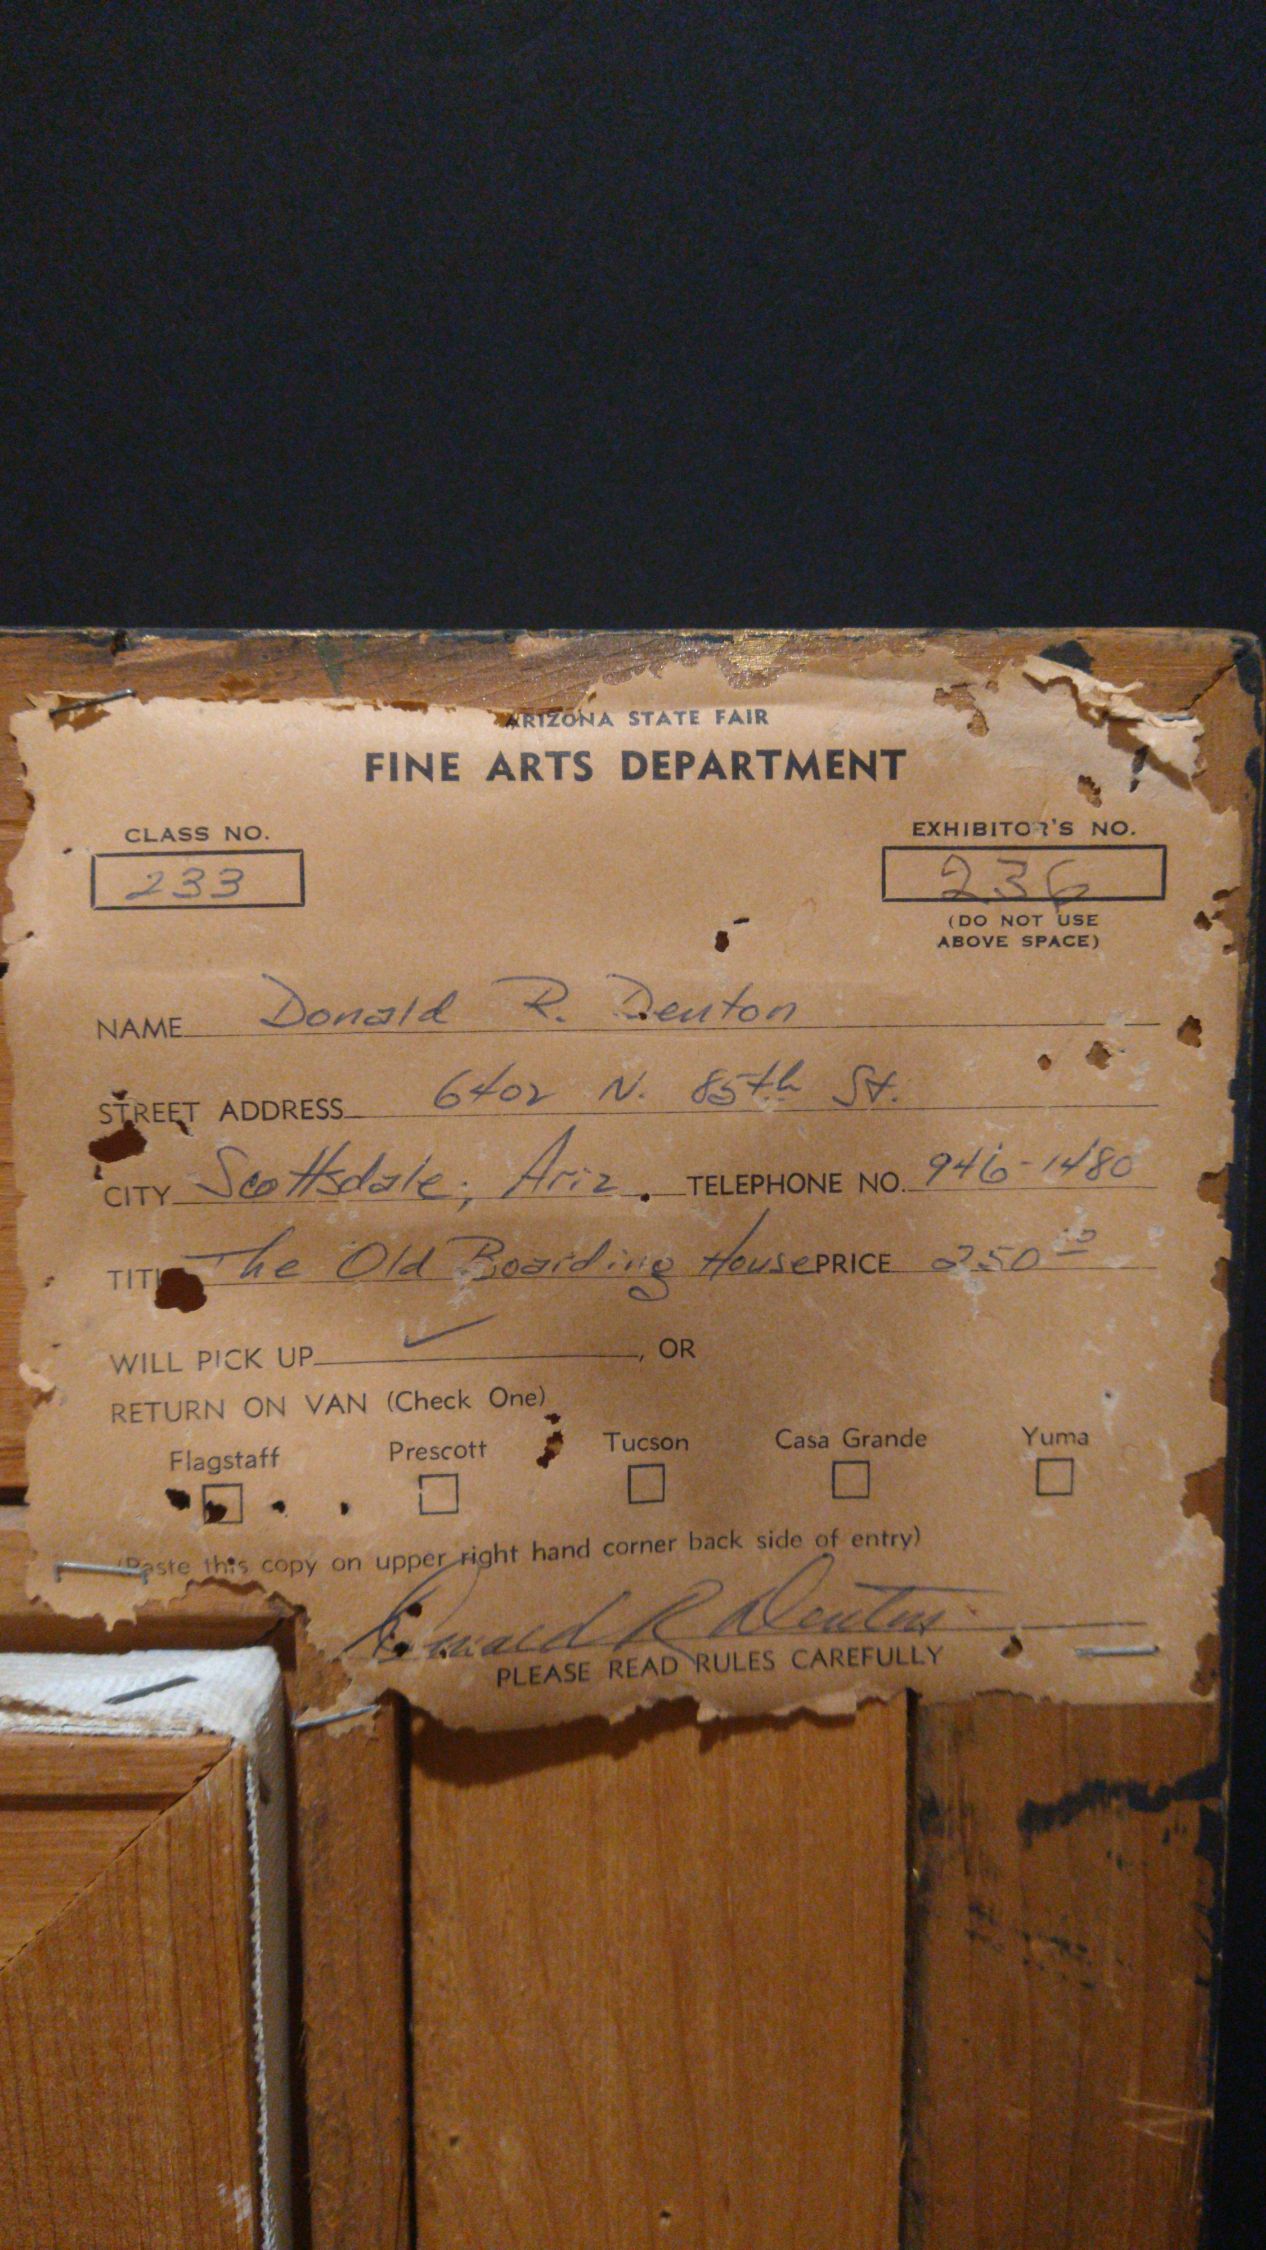 ARIZONA STATE FAIR
FINE ARTS DEPARTMENT
CLASS NO. EXHIBITOR'S NO.
233 236
(DO NOT USE
ABOVE SPACE)
NAME Donald R. Denton
STREET ADDRESS 6402 N. 85th St.
CITY Scottsdale, Ariz. TELEPHONE NO. 946-1480
TITLE The Old Boarding House PRICE 250
WILL PICK UP ✓, OR
RETURN ON VAN (Check One)
Flagstaff Prescott Tucson Casa Grande Yuma
(Paste this copy on upper right hand corner back side of entry)
Donald R Denton
PLEASE READ RULES CAREFULLY